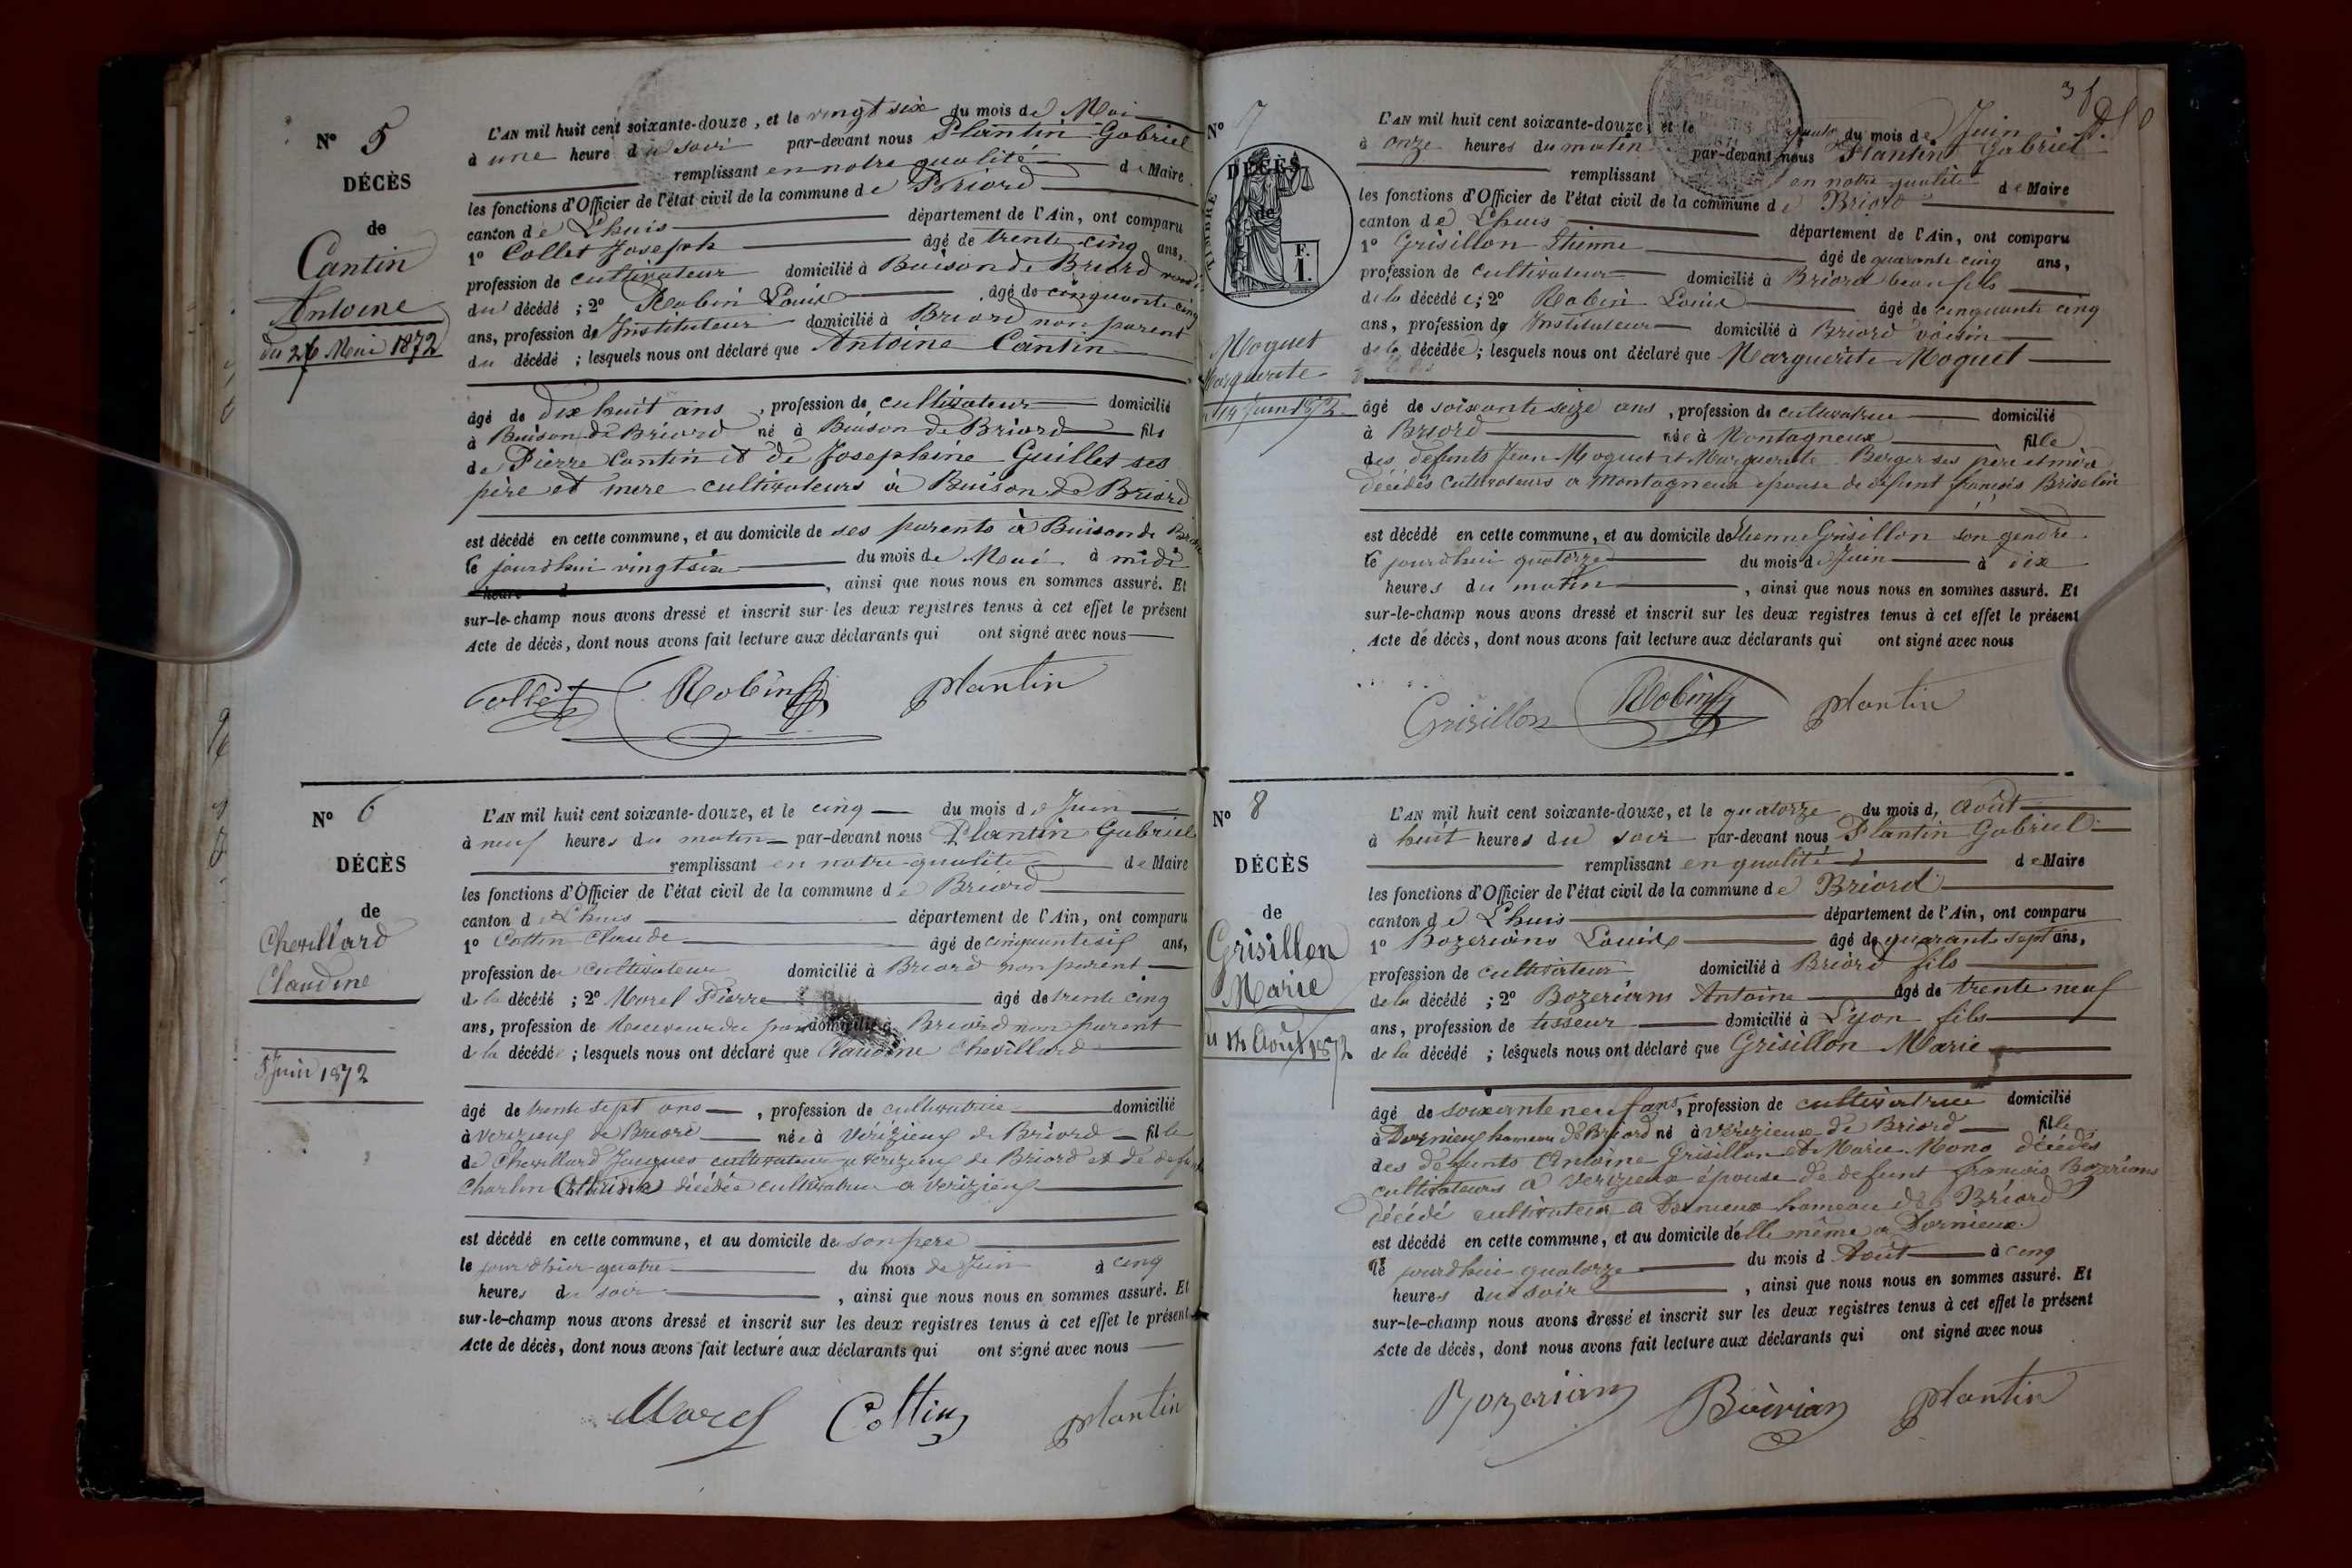 N° 5
DÉCÈS
de
Cantin
Antoine
du 26 Mai 1872
L'AN mil huit cent soixante-douze, et le vingt six du mois de Mai
à une heure du soir par-devant nous Plantin Gabriel
remplissant en notre qualité de Maire
les fonctions d'Officier de l'état civil de la commune de Briord
canton de Lhuis département de l'Ain, ont comparu
1° Collet Joseph âgé de trente cinq ans,
profession de cultivateur domicilié à Buison de Briord
du décédé ; 2° Robin Louis âgé de cinquante cinq
ans, profession de Instituteur domicilié à Briord non parent
du décédé ; lesquels nous ont déclaré que Antoine Cantin
âgé de dix huit ans, profession de cultivateur domicilié
à Buison de Briord né à Buison de Briord fils
de Pierre Cantin et de Josephine Guillet ses
père et mere cultivateurs à Buison de Briord
est décédé en cette commune, et au domicile de ses parents à Buison de
le jourdhui vingt six du mois de Mai à midi
heure d , ainsi que nous nous en sommes assuré. Et
sur-le-champ nous avons dressé et inscrit sur les deux registres tenus à cet effet le présent
Acte de décès, dont nous avons fait lecture aux déclarants qui ont signé avec nous
Collet Robin plantin
N° 6
DÉCÈS
de
Chevillard
Claudine
5 Juin 1872
L'AN mil huit cent soixante-douze, et le cinq du mois de Juin
à neuf heures du matin par-devant nous Plantin Gabriel
remplissant en notre qualité de Maire
les fonctions d'Officier de l'état civil de la commune de Briord
canton de Lhuis département de l'Ain, ont comparu
1° Cottin Claude âgé de cinquante six ans,
profession de cultivateur domicilié à Briord non parent
de la décédé ; 2° Morel Pierre âgé de trente cinq
ans, profession de domicilié à Briord non parent
de la décédé ; lesquels nous ont déclaré que Claudine Chevillard
âgé de trente sept ans, profession de cultivatrice domicilié
à verizieux de Briord née à Vérizieux de Briord fille
de Chevillard Jacques cultivateur a verizieux de Briord et de
Charlin décédée cultivatrice a verizieux
est décédé en cette commune, et au domicile de son pere
le jour d'hier quatre du mois de Juin à cinq
heures du soir , ainsi que nous nous en sommes assuré. Et
sur-le-champ nous avons dressé et inscrit sur les deux registres tenus à cet effet le présent
Acte de décès, dont nous avons fait lecture aux déclarants qui ont signé avec nous
Morel Cottin plantin
N° 7
DÉCÈS
de
TIMBRE
F.
1.
Moquet
Marguerite
14 Juin 1872
L'AN mil huit cent soixante-douze, et le du mois de Juin
à onze heures du matin par-devant nous Plantin Gabriel
remplissant en notre qualité de Maire
les fonctions d'Officier de l'état civil de la commune de Briord
canton de Lhuis département de l'Ain, ont comparu
1° Grisillon Etienne âgé de quarante cinq ans,
profession de cultivateur domicilié à Briord beau fils
de la décédée ; 2° Robin Louis âgé de cinquante cinq
ans, profession de Instituteur domicilié à Briord voisin
de la décédée ; lesquels nous ont déclaré que Marguerite Moquet
âgé de soixante seize ans, profession de cultivatrice domicilié
à Briord née à Montagneux fille
des defunts Jean Moquet et Marguerite Berger ses père et mère
décédés cultivateurs a Montagneux épouse de défunt françois
est décédé en cette commune, et au domicile de Etienne Grisillon son gendre
le jourdhui quatorze du mois de Juin à dix
heures du matin , ainsi que nous nous en sommes assuré. Et
sur-le-champ nous avons dressé et inscrit sur les deux registres tenus à cet effet le présent
Acte de décès, dont nous avons fait lecture aux déclarants qui ont signé avec nous
Grisillon Robin plantin
N° 8
DÉCÈS
de
Grisillon
Marie
14 Août 1872
L'AN mil huit cent soixante-douze, et le quatorze du mois d, Août
à huit heures du soir par-devant nous Plantin Gabriel
remplissant en qualité de Maire
les fonctions d'Officier de l'état civil de la commune de Briord
canton de Lhuis département de l'Ain, ont comparu
1° Bozerians Louis âgé de quarante sept ans,
profession de cultivateur domicilié à Briord fils
de la décédé ; 2° Bozerians Antoine âgé de trente neuf
ans, profession de tisseur domicilié à Lyon fils
de la décédé ; lesquels nous ont déclaré que Grisillon Marie
âgé de soixante neuf ans, profession de cultivatrice domicilié
à Dornieux hameau de Briord né à Vérizieux de Briord fille
des défunts Antoine Grisillon et Marie décédés
cultivateurs a Verizieux épouse de defunt françois Bozerians
décédé cultivateur a Dornieux hameau de Briord
est décédé en cette commune, et au domicile d'elle même a Dornieux
le jourdhui quatorze du mois d Août à cinq
heures du soir , ainsi que nous nous en sommes assuré. Et
sur-le-champ nous avons dressé et inscrit sur les deux registres tenus à cet effet le présent
Acte de décès, dont nous avons fait lecture aux déclarants qui ont signé avec nous
Bozerian plantin